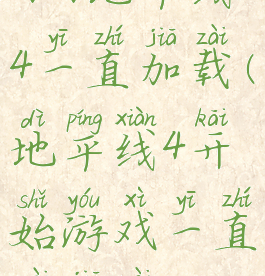 yī zhí jiā zài
4一直加载(
dì píng xiàn kāi
地平线4开
shǐ yóu xì yī zhí
始游戏一直